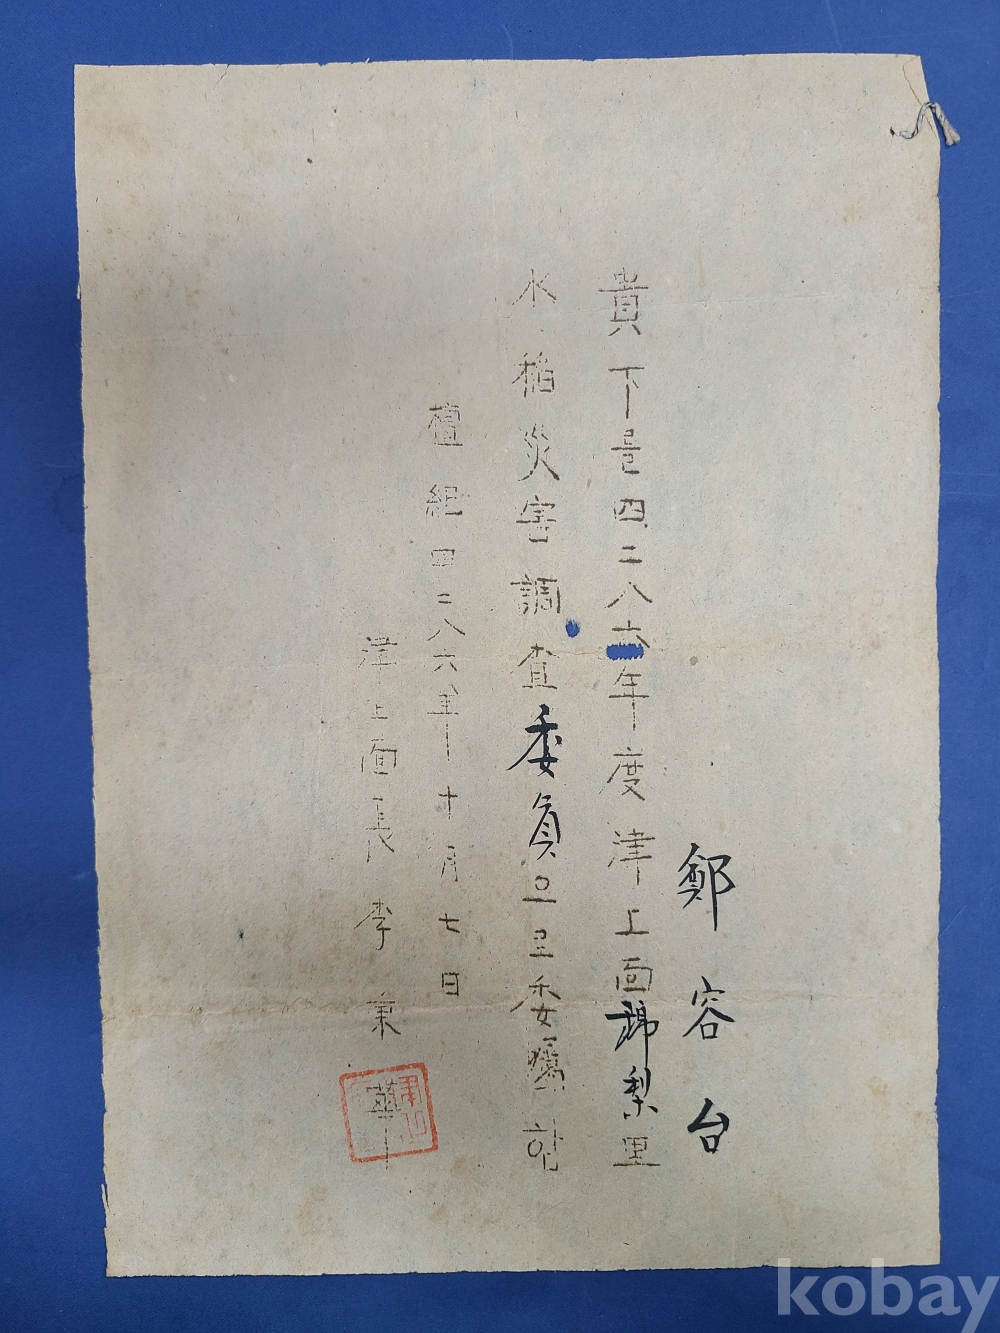 鄭容台
貴下를四二八六年度津上面錦梨里
水稻災害調査委員으로委囑함
檀紀四二八六年十月七日
津上面長李秉華
kobay